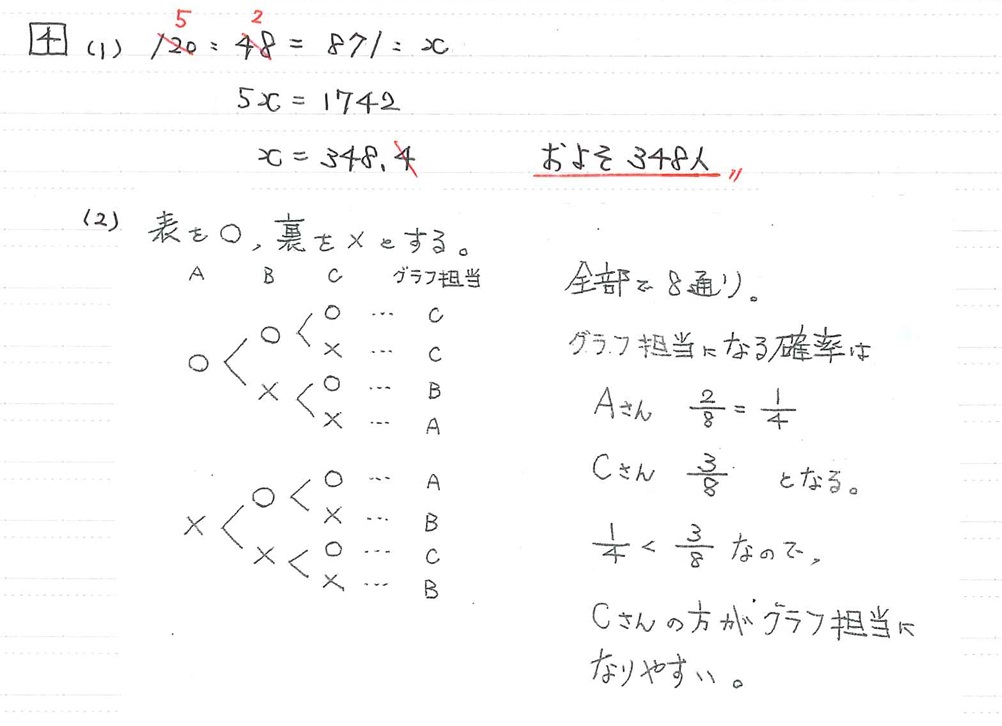 4 (1) 120 : 48 = 871 : x
5 2
5x = 1742
x = 348.4 およそ 348人 〃
(2) 表を○, 裏を×とする。
A B C グラフ担当
○ ○ ○ … C
× … C
× ○ … B
× … A
× ○ ○ … A
× … B
× ○ … C
× … B
全部で8通り。
グラフ担当になる確率は
Aさん 2/8 = 1/4
Cさん 3/8 となる。
1/4 < 3/8 なので,
Cさんの方がグラフ担当に
なりやすい。